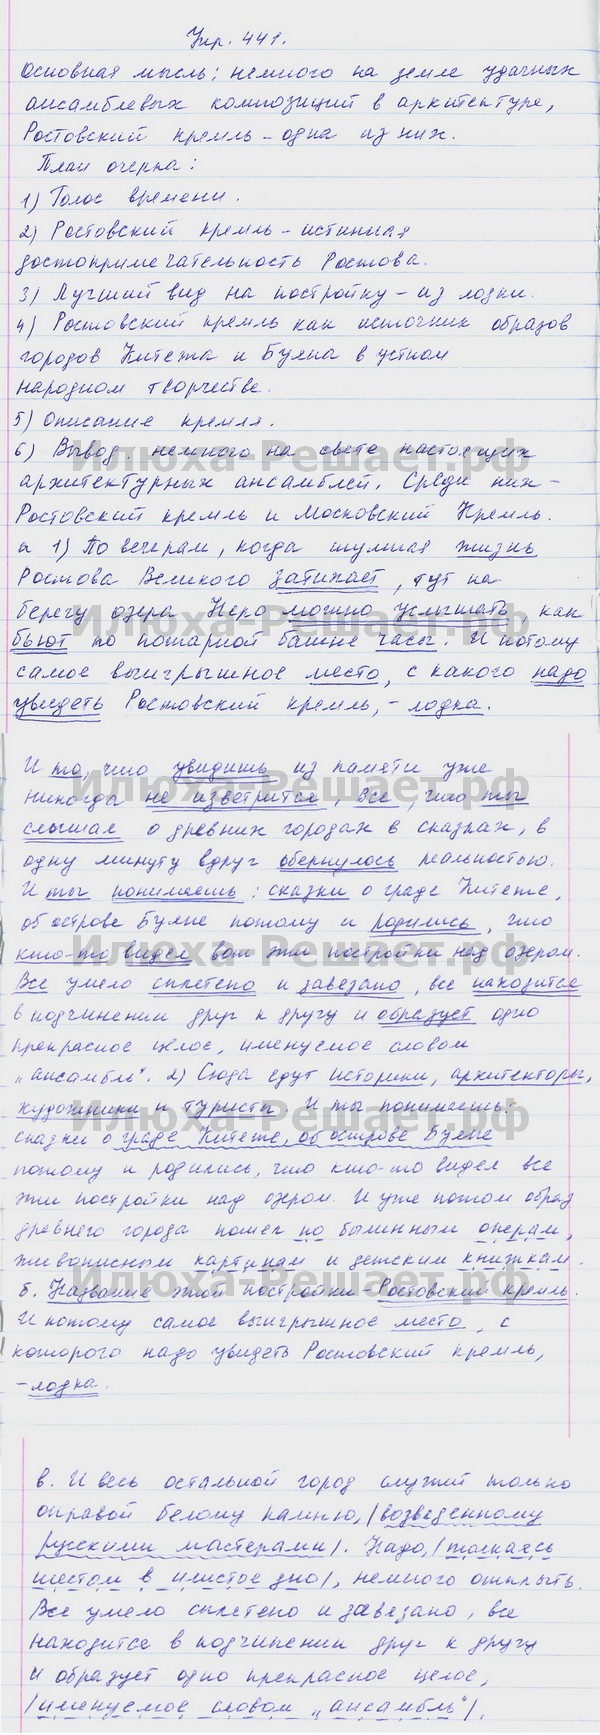 Упр. 441.
Основная мысль: немного на земле удачных
ансамблевых композиций в архитектуре,
Ростовский кремль – одна из них.
План очерка:
1) Голос времени.
2) Ростовский кремль – истинная
достопримечательность Ростова.
3) Лучший вид на постройку – из лодки.
4) Ростовский кремль как источник образов
городов Китежа и Буяна в устном
народном творчестве.
5) Описание кремля.
6) Вывод. Немного на свете настоящих
архитектурных ансамблей. Среди них –
Ростовский кремль и Московский Кремль.
а 1) По вечерам, когда шумная жизнь
Ростова Великого затихает, тут на
берегу озера Неро можно услышать, как
бьют по пожарной башне часы. И потому
самое выигрышное место, с какого надо
увидеть Ростовский кремль, – лодка.
И то, что увидишь из памяти уже
никогда не изветрится. Все, что ты
слышал о древних городах в сказках, в
одну минуту вдруг обернулось реальностью.
И ты понимаешь: сказки о граде Китеже,
об острове Буяне потому и родились, что
кто-то видел вот эти постройки над озером.
Все умело сплетено и завязано, все находится
в подчинении друг к другу и образует одно
прекрасное целое, именуемое словом
„ансамбль". 2) Сюда едут историки, архитекторы,
художники и туристы. И ты понимаешь:
сказки о граде Китеже, об острове Буяне
потому и родились, что кто-то видел все
эти постройки над озером. И уже потом образ
древнего города пошел по былинным операм,
живописным картинам и детским книжкам.
б. Название этой постройки – Ростовский кремль.
И потому самое выигрышное место, с
которого надо увидеть Ростовский кремль,
– лодка.
в. И весь остальной город служит только
оправой белому камню, |возведенному
русскими мастерами|. Надо, |толкаясь
шестом в илистое дно|, немного отплыть.
Все умело сплетено и завязано, все
находится в подчинении друг к другу
и образует одно прекрасное целое,
|именуемое словом „ансамбль"|.
Илюха-Решает.рф
Илюха-Решает.рф
Илюха-Решает.рф
Илюха-Решает.рф
Илюха-Решает.рф
Илюха-Решает.рф
Илюха-Решает.рф